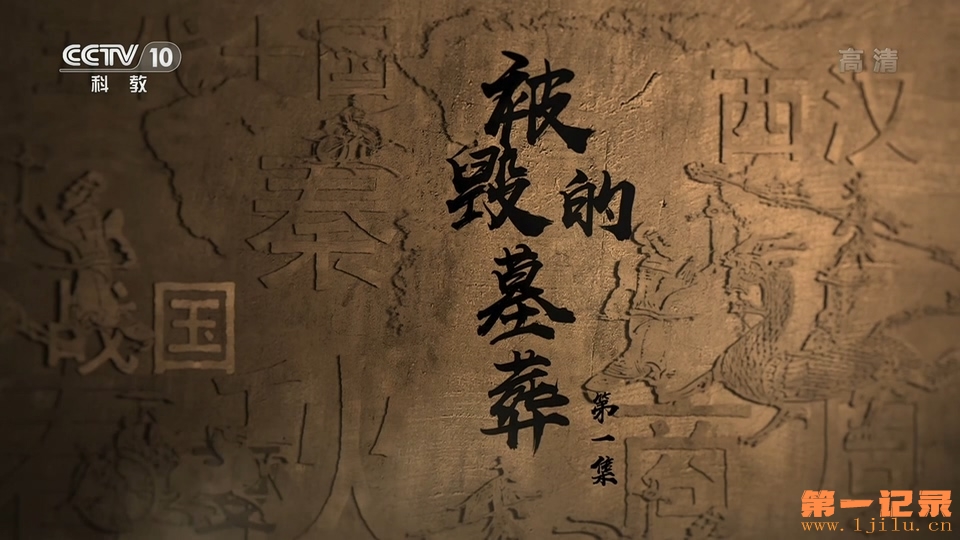 CCTV 10
科教
高清
被毁的墓葬
第一集
西汉
秦
战国
商
周
第一记录
www.1jilu.cn